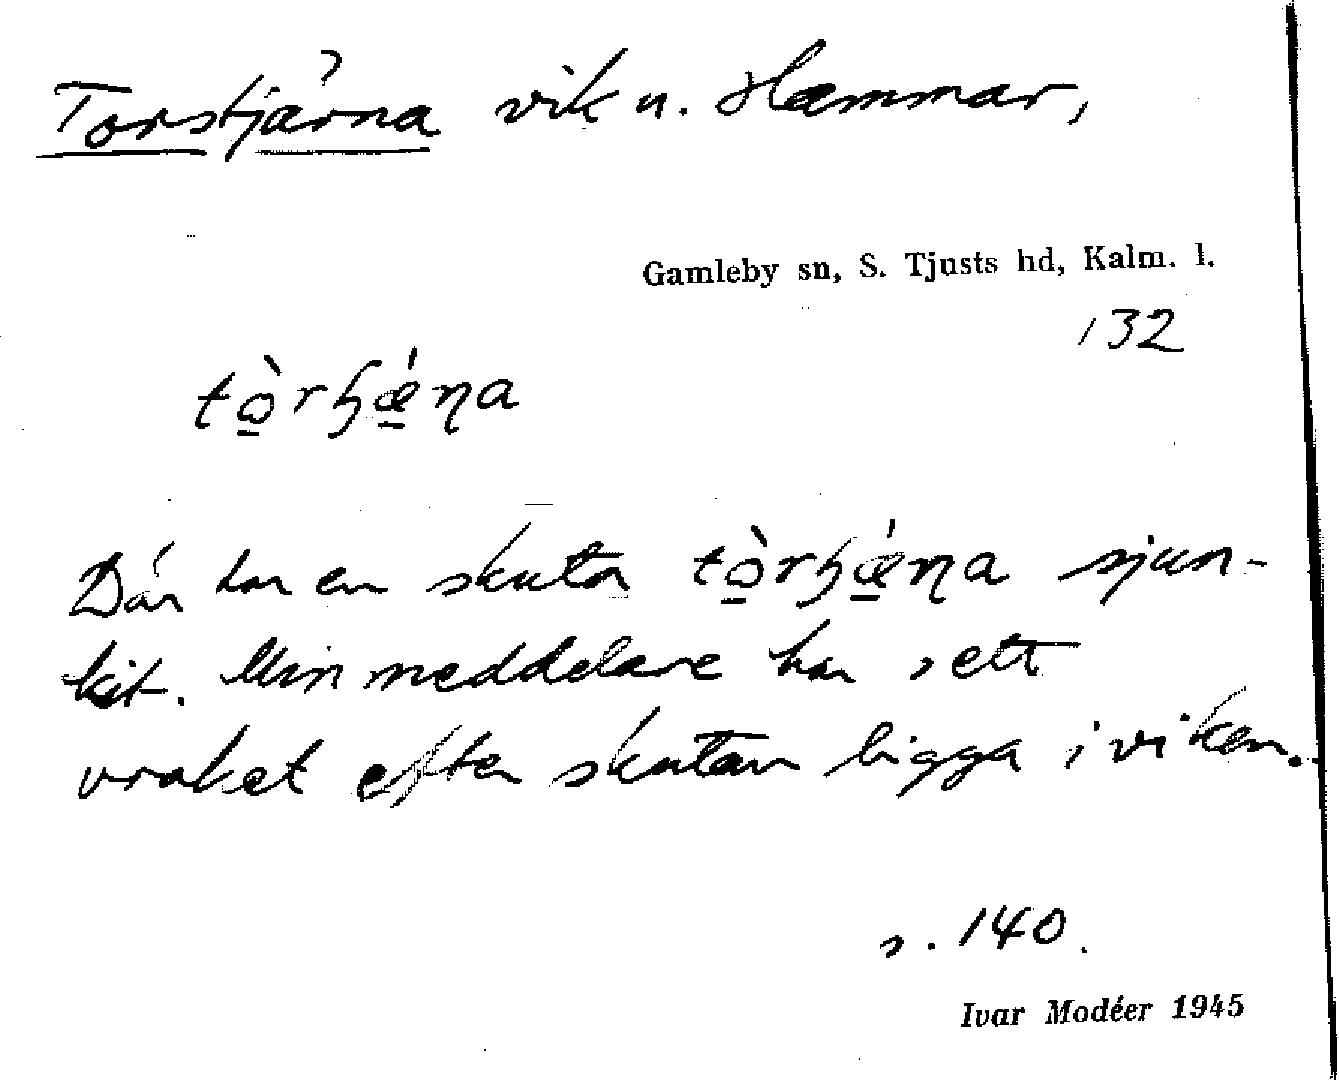 Torstjärna ? vik u. Hammar,
Gamleby sn, S. Tjusts hd, Kalm. l.
132
tò̠rɧǽ̠ɳa
Där har en skuta tò̠rɧǽ̠ɳa sjun-
kit. Min meddelare har sett
vraket efter skutan ligga i viken.
s. 140.
Ivar Modéer 1945